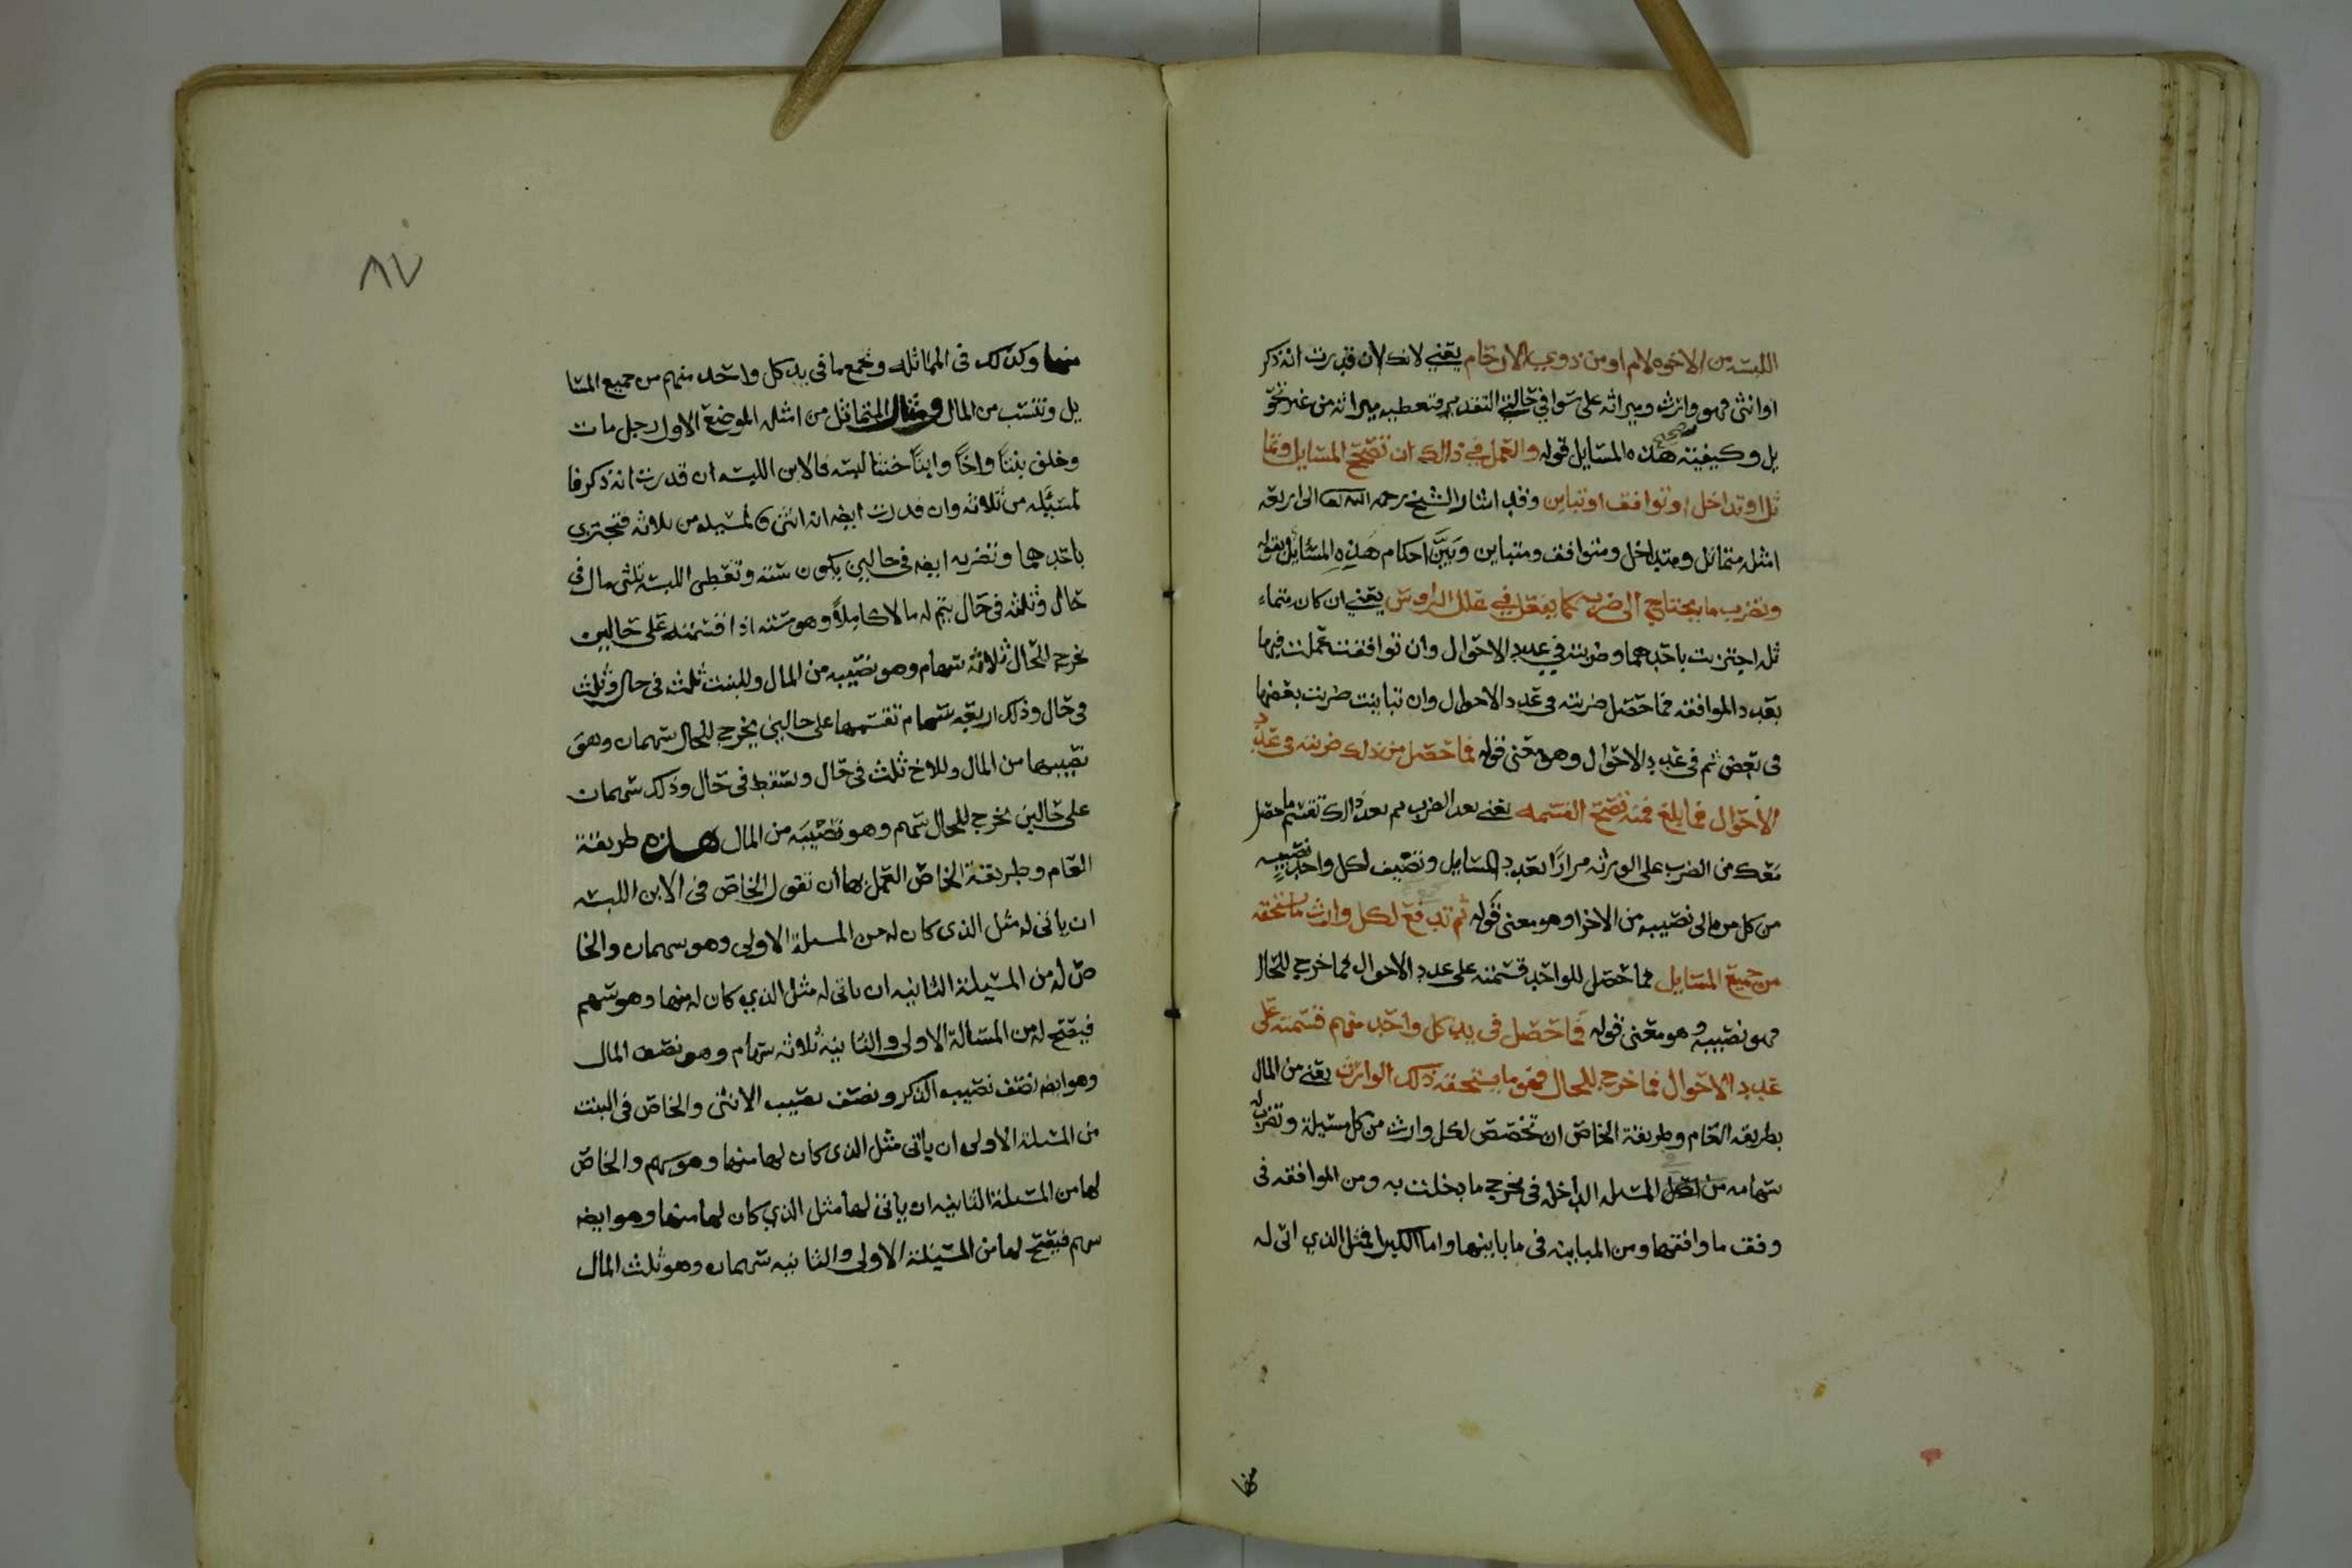 اللبسه من الاخوه لام او من ذوي الارحام يعني لانك لان قدرت انه ذكر
او انثى فهو وارث وميراثه على سوا في حالتي التقدير فتعطيه ميراثه من غير تحو
يل وكيفية تصحيح هذه المسايل قوله والعمل في ذالك ان تصحح المسايل وتما
ثل او تداخل او توافق او تباين وقد اشار الشيخ رحمه الله تعالى الى اربعه
امثله متماثل ومتداخل ومتوافق ومتباين وبين احكام هذه المسائل بقوله
وتضرب ما يحتاج الى ضرب كما يفعل في علل الروس يعني ان كان متماء
ثله اجتزيت باحدهما وضربته في عدد الاحوال وان توافقت عملت فيها
بعدد الموافقه فما حصل ضربته في عدد الاحوال وان تباينت ضربت بعضها
في بعض ثم في عدد الاحوال وهو معنى قوله فما حصل من ذلك ضربته في عدد
الاحوال فما بلغ فمنه تصح القسمه يعني بعد الضرب ثم بعد ذالك تقسم ما حصل
معك من الضرب على الورثه مرارًا بعدد المسايل وتضيف لكل واحد نصيبه
من كل من مالى نصيبه من الاخرا وهو معنى قوله ثم تدفع لكل وارث ما يستحقه
من جميع المسايل فما حصل للواحد قسمته على عدد الاحوال فما خرج للحال
فهو نصيبه وهو معنى قوله فما حصل في يد كل واحد منهم قسمته على
عدد الاحوال فما خرج للحال فهو ما يستحقه ذلك الوارث يعني من المال
بطريقه العام وطريقة الخاص ان تخصص لكل وارث من كل مسيلة وتضرب له
سهامه من المسله الداخله في مخرج ما دخلت به ومن الموافقه في
وفق ما وافقها ومن المباينه في ما باينها واما الكبرا فمثل الذي اتى له
منها
٨٧
منها وكذلك في المماثله وتجمع ما في يد كل واحد منهم من جميع المسا
يل وتنسب من المال ومثال المتماثل من امثله الموضع الاول رجل مات
وخلف بنتًا واخًا وابنًا خنثا لبسه فالابن اللبسه ان قدرت انه ذكر فا
لمسئله من ثلاثه وان قدرت ايضه انه انثى فالمسيله من ثلاثه فتجتزي
باحدهما وتضربه ايضه في حالين يكون سته وتعطي اللبسه ثلثي مال في
حال وثلثه في حال يتم له مالا كاملًا وهو سته اذا قسمته على حالين
خرج للحال ثلاثه سهام وهو نصيبه من المال وللبنت ثلث في حال وثلث
في حال وذلك اربعه سهام تقسمها على حالين يخرج للحال سهمان وهو
نصيبها من المال وللاخ ثلث في حال ويسقط في حال وذلك سهمان
على حالين يخرج للحال سهم وهو نصيبه من المال هذه طريقة
العام وطريقة الخاص العمل بها ان نقول الخاص في الابن اللبسه
ان ياتي له مثل الذي كان له من المسلة الاولى وهو سهمان والخا
ص له من المسيلة الثانيه ان ياتى له مثل الذي كان له منها وهو سهم
فيصح له من المسالة الاولى والثانية ثلاثه سهام وهو نصف المال
وهو ايضه نصف نصيب الذكر ونصف نصيب الانثى والخاص في البنت
من المسلة الاولى ان ياتى مثل الذي كان لها منها وهو سهم والخاص
لها من المسلة الثانيه ان ياتى لها مثل الذي كان لها منها وهو ايضه
سهم فيصح لها من المسيلة الاولى والثانيه سهمان وهو ثلث المال